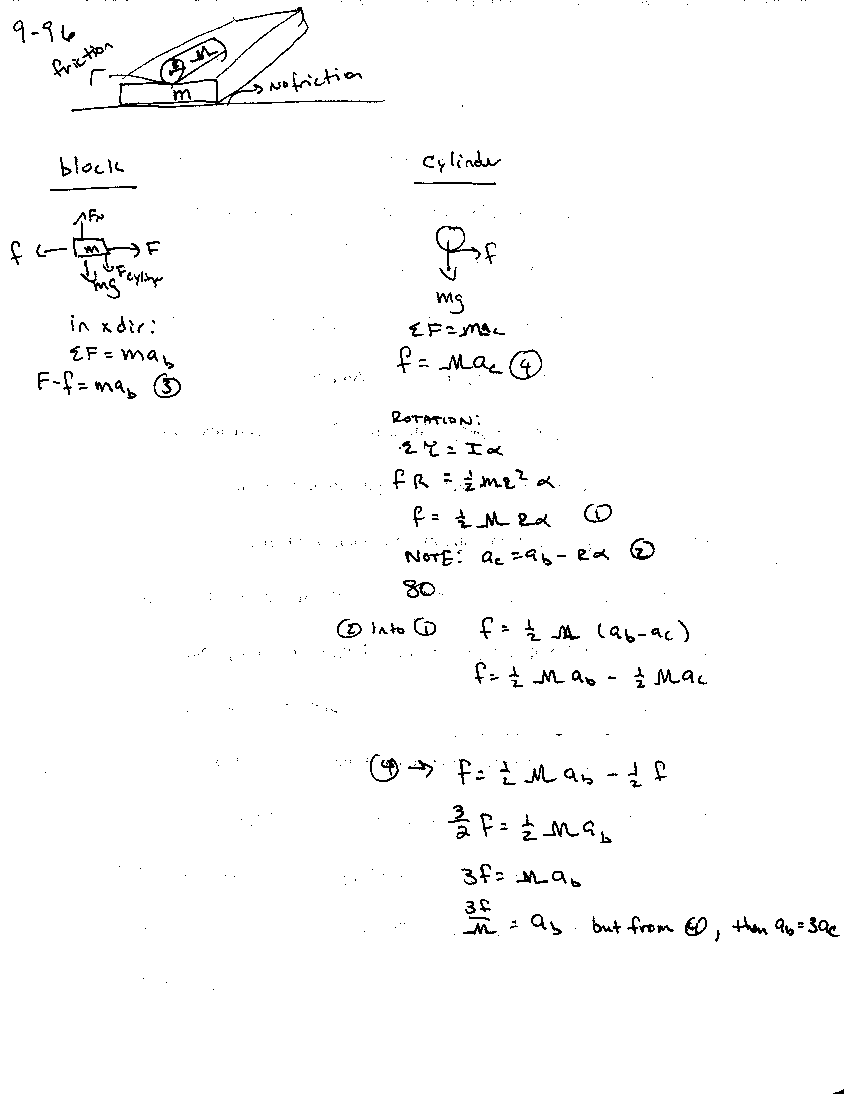 9-96
friction
M
m
No friction
block
FN
f
m
F
mg
Fcylinder
in x dir:
ΣF = ma_b
F-f = ma_b ③
cylinder
f
mg
f = Ma_c ④
ROTATION:
Στ = Iα
fR = ½mR²α
f = ½ M Rα ①
NOTE: a_c = a_b - Rα ②
SO
② into ① f = ½ M (a_b-a_c)
f = ½ M a_b - ½ M a_c
④ → f = ½ M a_b - ½ f
3/2 f = ½ M a_b
3f = M a_b
3f/M = a_b but from ④, then a_b = 3a_c